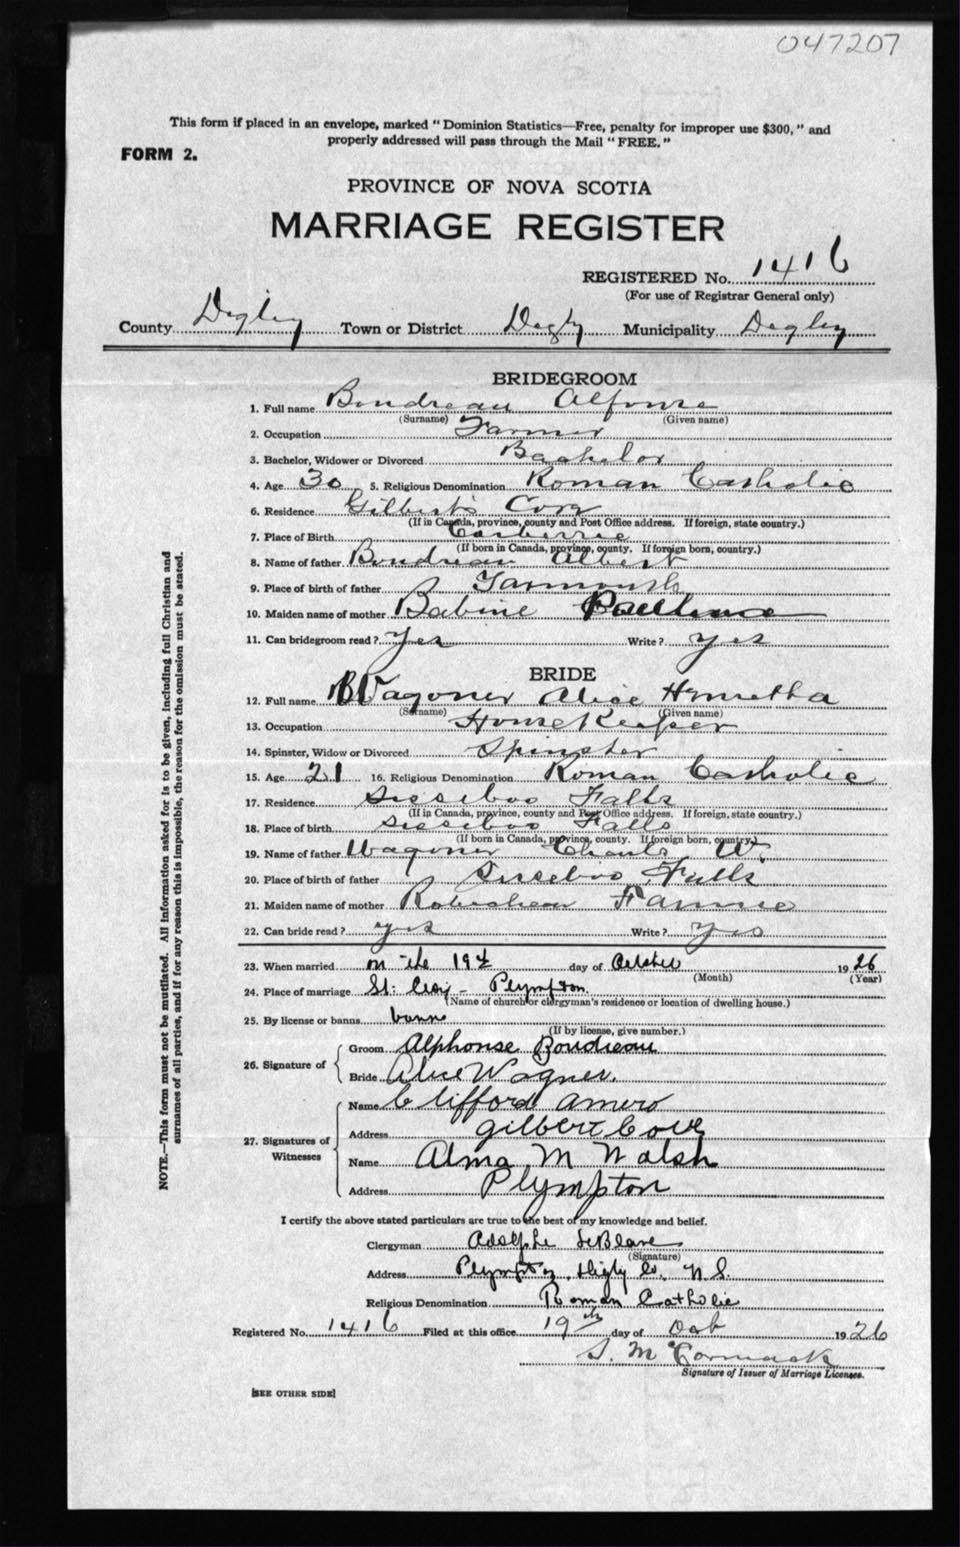 047207
This form if placed in an envelope, marked "Dominion Statistics—Free, penalty for improper use $300," and
properly addressed will pass through the Mail "FREE."
FORM 2.
PROVINCE OF NOVA SCOTIA
MARRIAGE REGISTER
REGISTERED No. 1416
(For use of Registrar General only)
County Digby Town or District Digby Municipality Digby
BRIDEGROOM
1. Full name Boudreau Alfonse
(Surname) (Given name)
2. Occupation Farmer
3. Bachelor, Widower or Divorced Bachelor
4. Age 30 5. Religious Denomination Roman Catholic
6. Residence Gilberts Cove
(If in Canada, province, county and Post Office address. If foreign, state country.)
7. Place of Birth
(If born in Canada, province, county. If foreign born, country.)
8. Name of father Boudreau Albert
9. Place of birth of father Yarmouth
10. Maiden name of mother Babine
11. Can bridegroom read? Yes Write? yes
BRIDE
12. Full name Wagoner Alice Henretha
(Surname) (Given name)
13. Occupation House Keeper
14. Spinster, Widow or Divorced Spinster
15. Age 21 16. Religious Denomination Roman Catholic
17. Residence Sissiboo Falls
(If in Canada, province, county and Post Office address. If foreign, state country.)
18. Place of birth Sissiboo Falls
(If born in Canada, province, county. If foreign born, country.)
19. Name of father Wagoner Charls W.
20. Place of birth of father Sissiboo Falls
21. Maiden name of mother Robicheau Fannie
22. Can bride read? yes Write? yes
23. When married on the 19th day of October 1926
(Month) (Year)
24. Place of marriage St: Croix - Plympton
(Name of church or clergyman's residence or location of dwelling house.)
25. By license or banns banns
(If by license, give number.)
26. Signature of
Groom Alphonse Boudreau
Bride Alice Wagner.
27. Signatures of Witnesses
Name Clifford Amero
Address Gilbert Cove
Name Alma M Walsh
Address Plympton
I certify the above stated particulars are true to the best of my knowledge and belief.
Clergyman Adolphe LeBlanc
(Signature)
Address Plympton, Digby Co, N.S.
Religious Denomination Roman Catholic
Registered No. 1416 Filed at this office 19th day of Oct 1926
S. McCormack
Signature of Issuer of Marriage Licenses.
[SEE OTHER SIDE]
NOTE.—This form must not be mutilated. All information asked for is to be given, including full Christian and
surnames of all parties, and if for any reason this is impossible, the reason for the omission must be stated.